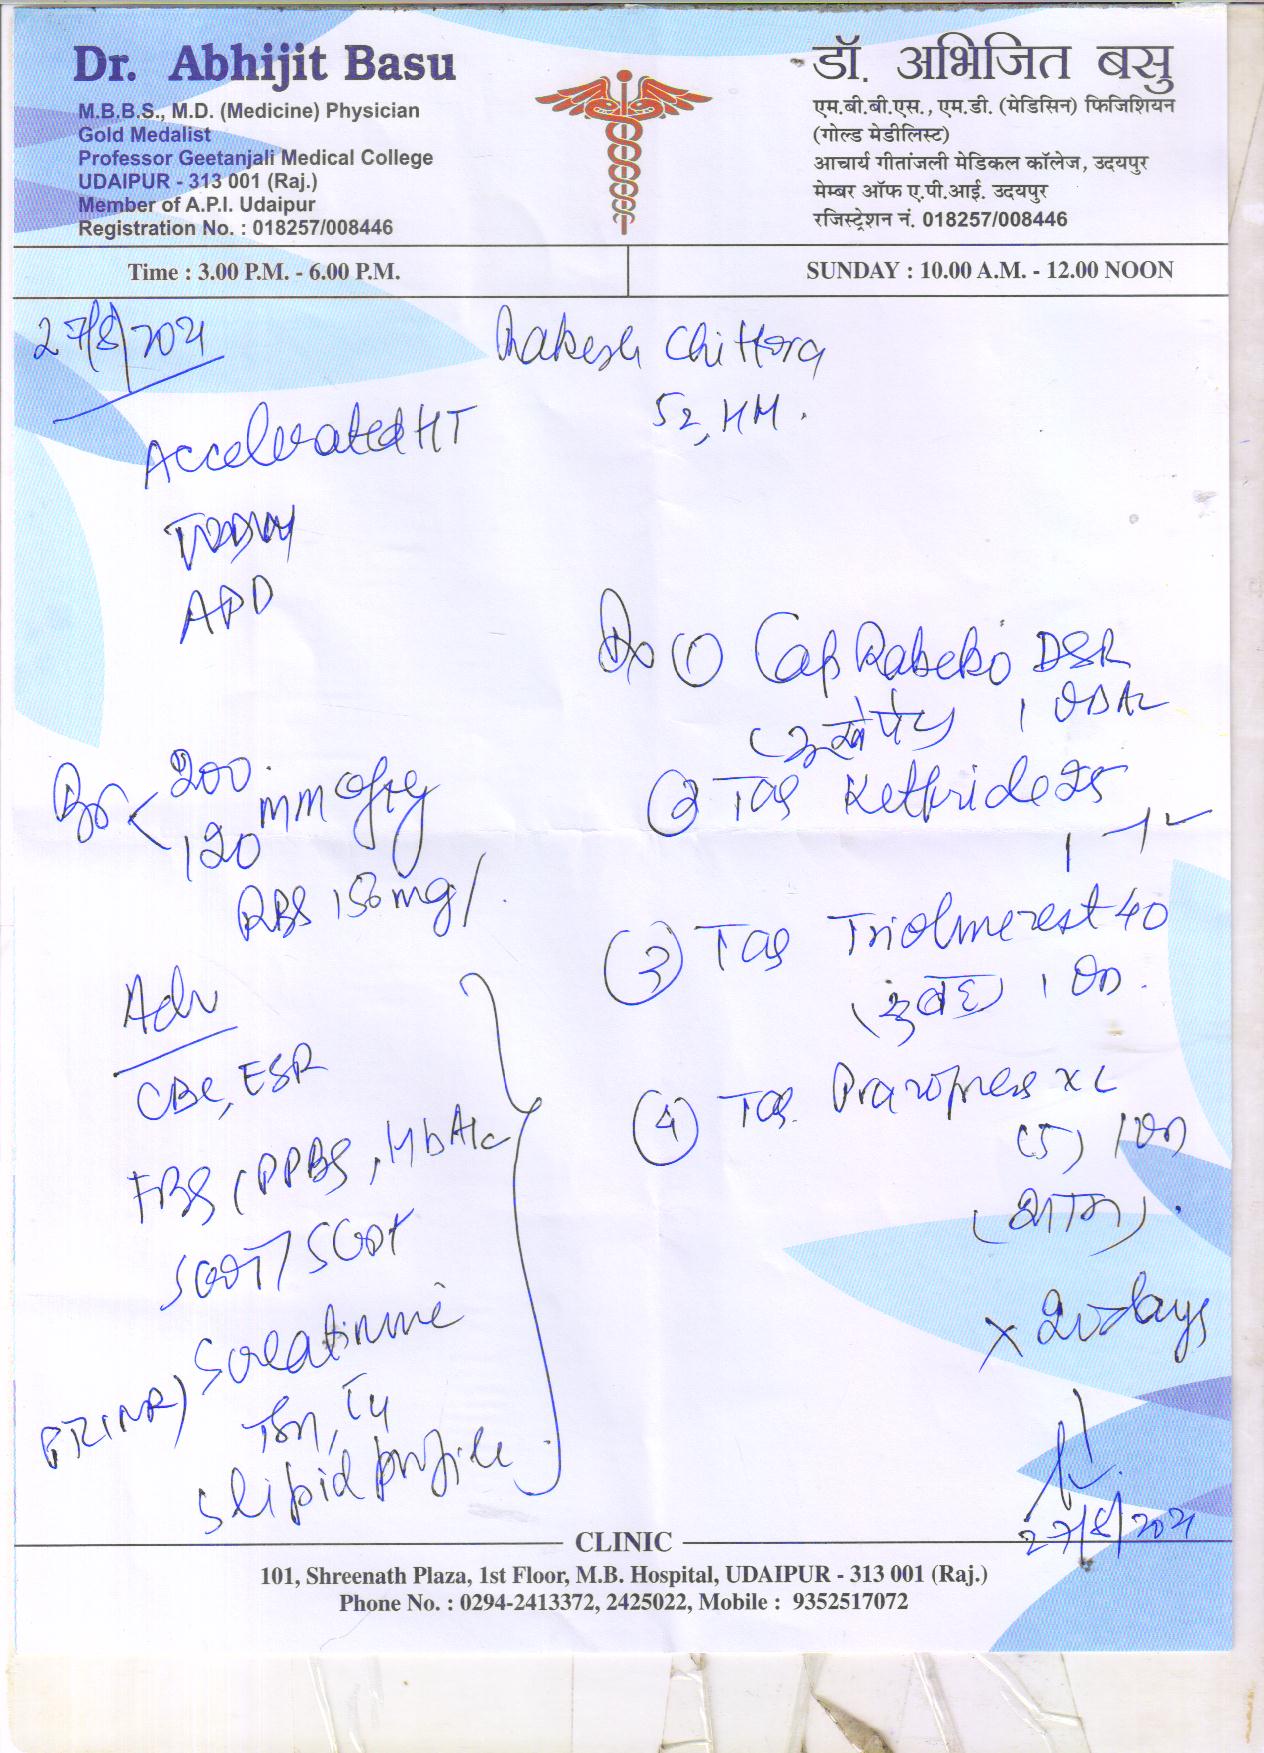 Dr. Abhijit Basu
M.B.B.S., M.D. (Medicine) Physician
Gold Medalist
Professor Geetanjali Medical College
UDAIPUR - 313 001 (Raj.)
Member of A.P.I. Udaipur
Registration No. : 018257/008446
डॉ. अभिजित बसु
एम.बी.बी.एस., एम.डी. (मेडिसिन) फिजिशियन
(गोल्ड मेडीलिस्ट)
आचार्य गीतांजली मेडिकल कॉलेज, उदयपुर
मेम्बर ऑफ ए.पी.आई. उदयपुर
रजिस्ट्रेशन नं. 018257/008446
Time : 3.00 P.M. - 6.00 P.M.
SUNDAY : 10.00 A.M. - 12.00 NOON
27/8/2021
Rakesh Chittora
52, HM.
Accelerated HT
APD
BP < 200/120 mm of Hg
RBS 156 mg/.
Adv
CBC, ESR
FBS, PPBS, HbA1c
SGOT/
S creatinine
PT(INR)
TSH, T4
S lipid profile
Rx (1) Cap Rabeko DSR
1 OD AC
(2) Tab 25
(3) Tab Triolmezest 40
(सुबह) 1 OD.
(4) Tab. Prazopress XL
(5) 1 OD
(शाम).
x 20 days
27/8/2021
CLINIC
101, Shreenath Plaza, 1st Floor, M.B. Hospital, UDAIPUR - 313 001 (Raj.)
Phone No. : 0294-2413372, 2425022, Mobile : 9352517072